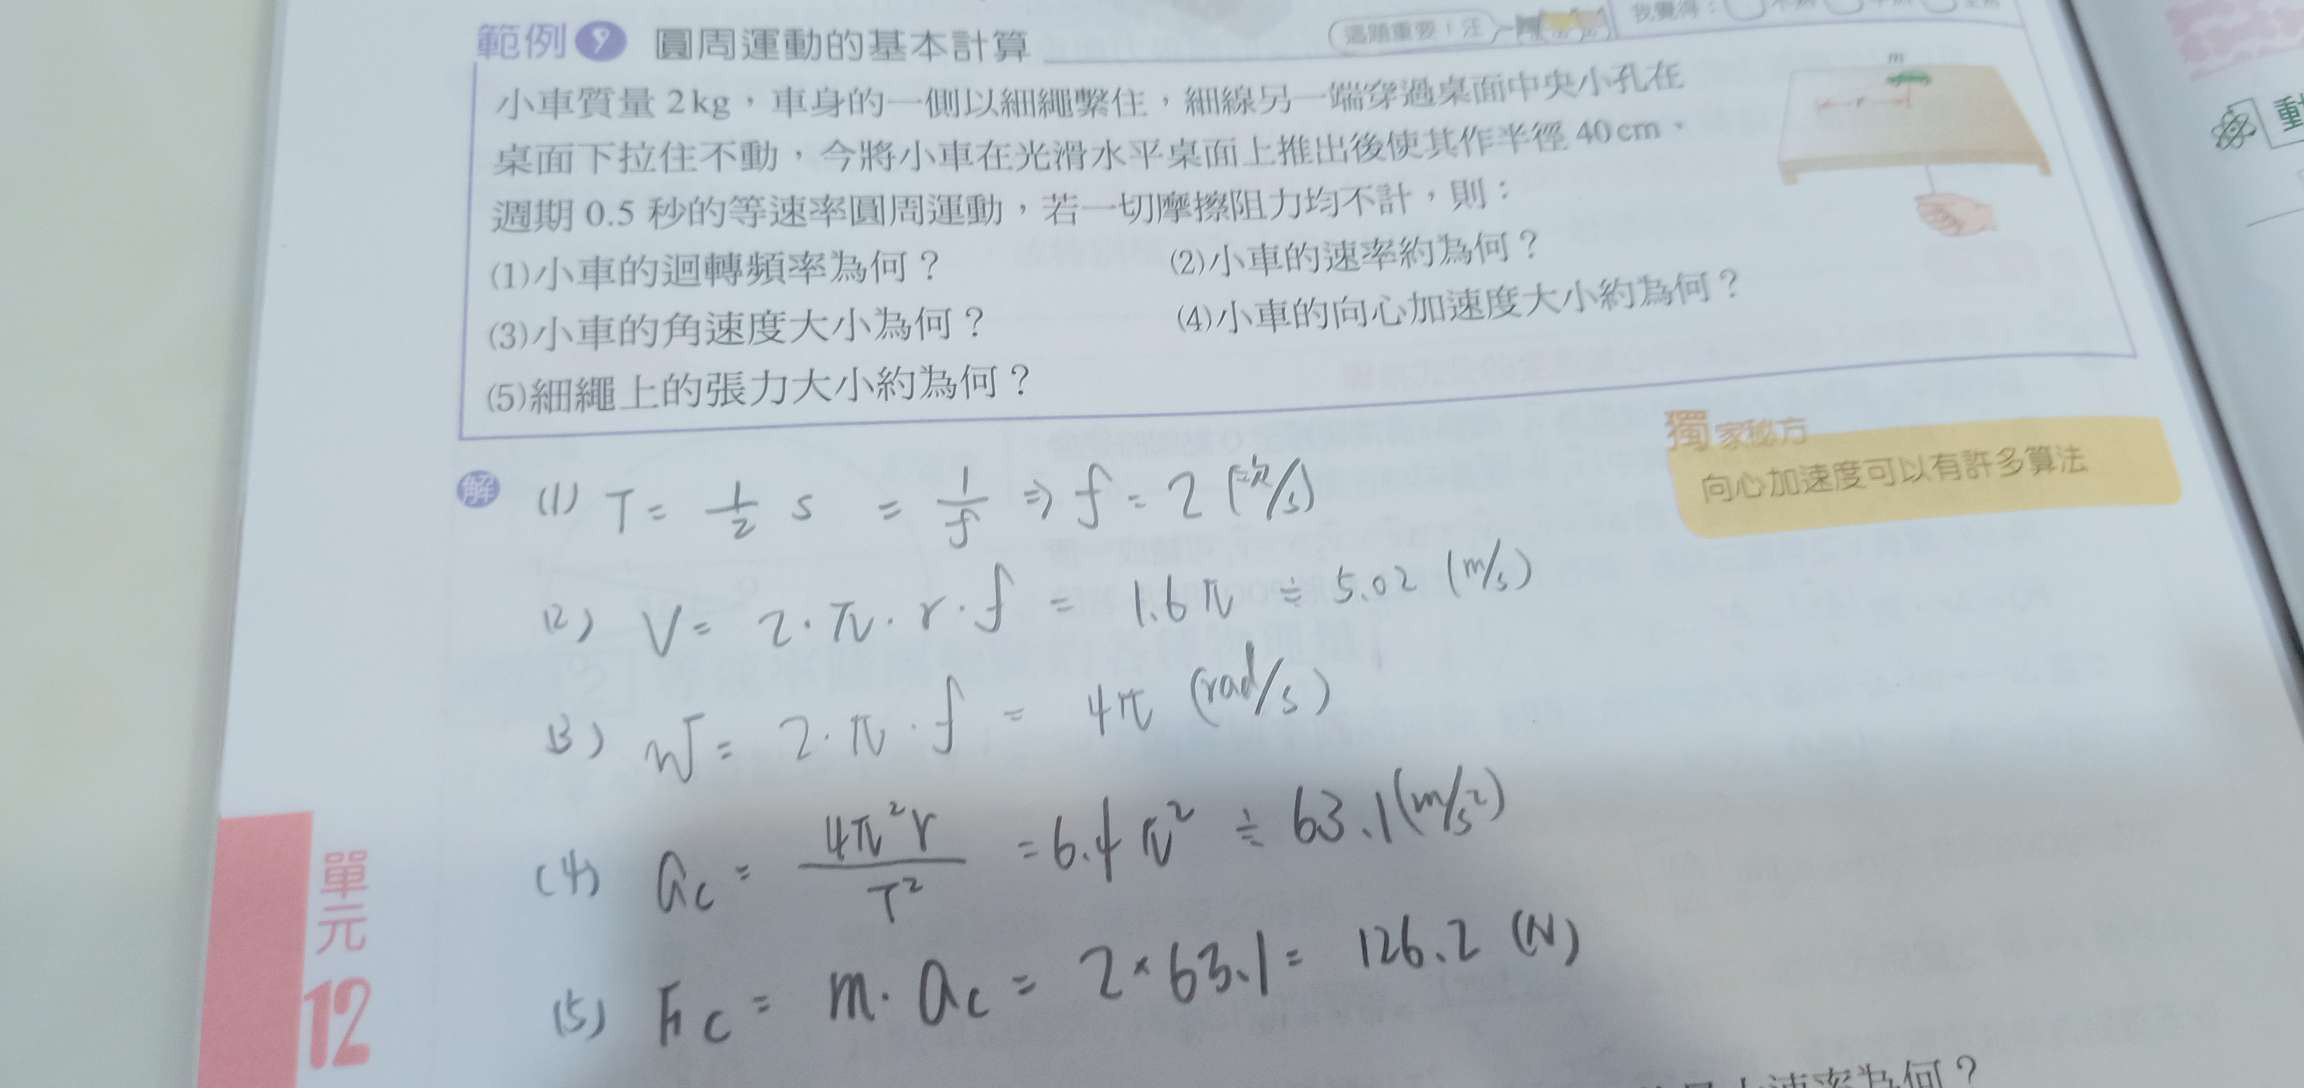 範例 9 圓周運動的基本計算
這題重要!汪
我覺得:
小車質量 2 kg,車身的一側以細繩繫住,細線另一端穿過桌面中央小孔在
桌面下拉住不動,今將小車在光滑水平桌面上推出後使其作半徑 40 cm、
週期 0.5 秒的等速率圓周運動,若一切摩擦阻力均不計,則:
(1)小車的迴轉頻率為何? (2)小車的速率約為何?
(3)小車的角速度大小為何? (4)小車的向心加速度大小約為何?
(5)細繩上的張力大小約為何?
m
r
獨家秘方
向心加速度可以有許多算法
解 (1) T = 1/2 s = 1/f ⇒ f = 2 (次/s)
(2) V = 2·π·r·f = 1.6π ≒ 5.02 (m/s)
(3) W = 2·π·f = 4π (rad/s)
(4) ac = 4π²r/T² = 6.4π² ≒ 63.1 (m/s²)
(5) Fc = m·ac = 2×63.1 = 126.2 (N)
單元
12
速率為何?
動